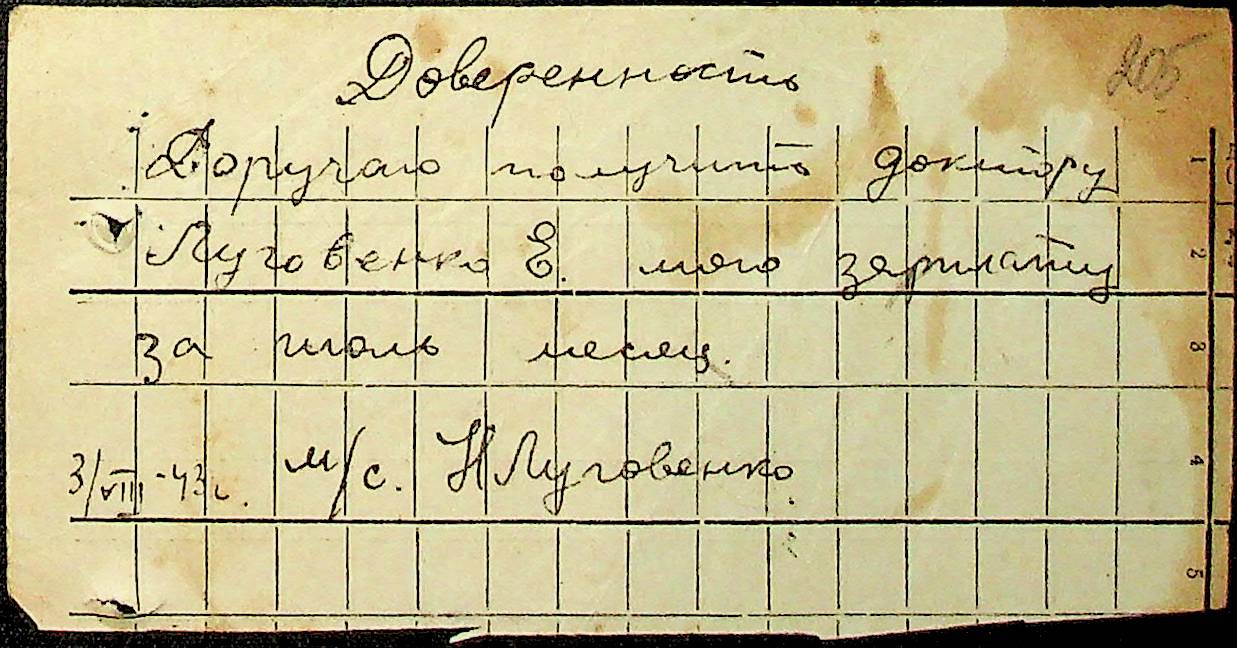 Доверенность
205
Доручаю получить доктору
Луговенко Е. мою зарплату
за июль месяц.
3/VIII-43г. м/с. НЛуговенко
1
2
3
4
5